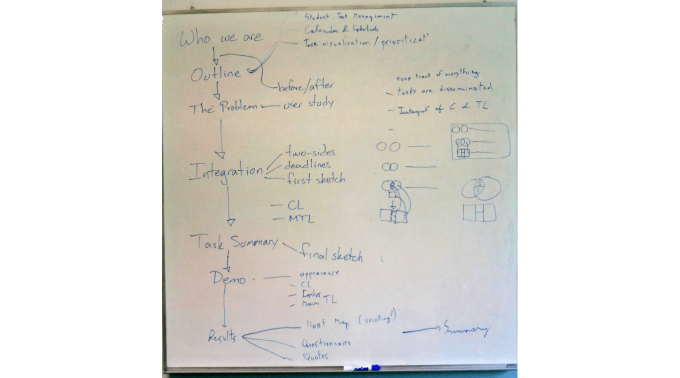 Student Task Management
Who we are
Calendar &
Task visualisation / prioritizat
Outline
before/after
The Problem - user study
keep track of everything
- tasks are disseminated
- of C & TL
Integration
two-sides
deadlines
first sketch
- CL
- MTL
Task Summary
final sketch
Demo
appearance
- CL
- TL
Results
Heat Map
Questionnaire
Quotes
Summary